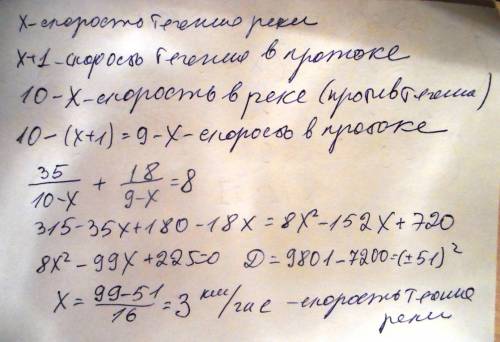 x-скорость течения реки
x+1-скорость течения в протоке
10-x-скорость в реке (против течения)
10-(x+1)=9-x-скорость в протоке
35/(10-x) + 18/(9-x) = 8
315-35x+180-18x=8x²-152x+720
8x²-99x+225=0 D=9801-7200=(±51)²
x=(99-51)/16=3 км/час -скорость течения
реки